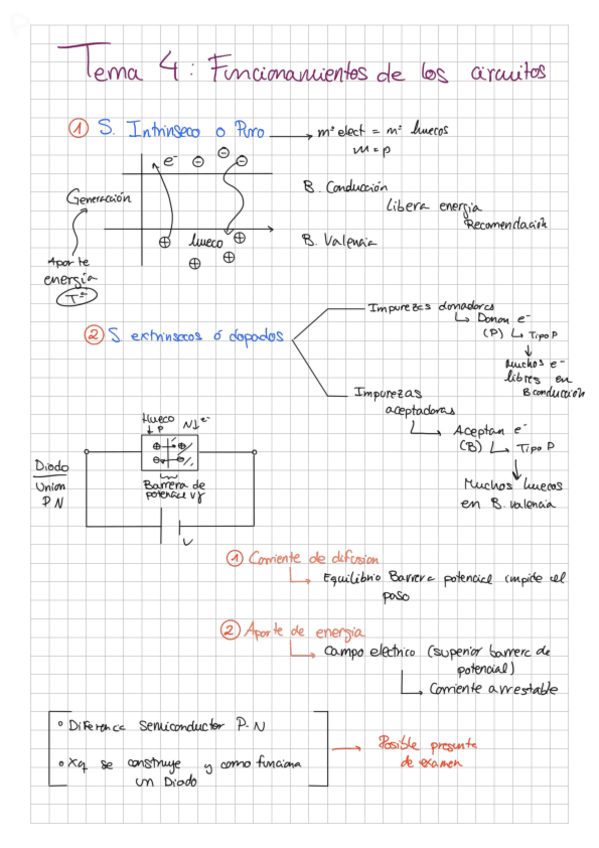 Tema 4: Funcionamientos de los circuitos
① S. Intrinseco o Puro → nº elect = nº huecos
n = p
e⁻
Generación
B. Conducción
Libera energia
Recomendación
hueco
B. Valencia
Aporte
energía
Tª
② S extrinsecos ó dopados
Impurezas donadores
↳ Donan e⁻
(P) ↳ Tipo P
Muchos e⁻
libres en
B conducción
Impurezas
aceptadoras
Aceptan e⁻
(B) ↳ Tipo P
Muchos huecos
en B. valencia
Hueco
↓ P N↓ e⁻
Diodo
Union
P N
Barrera de
potencial Vγ
V
① Corriente de difusion
Equilibrio Barrera potencial impide el
paso
② Aporte de energia
Campo electrico (superior barrera de
potencial)
Corriente arrestable
Diference semiconductor P-N
Xq se construye y como funciona
un Diodo
Posible presente
de examen